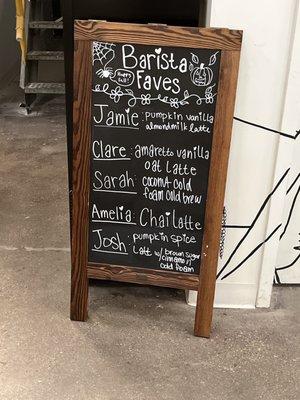 Barista
Faves
Happy Fall!
Jamie: pumpkin vanilla
almondmilk latte
Clare: amaretto vanilla
oat latte
Sarah: coconut cold
foam cold brew
Amelia: Chai latte
Josh: pumpkin spice
Latt w/ brown sugar
cinnamon
cold foam